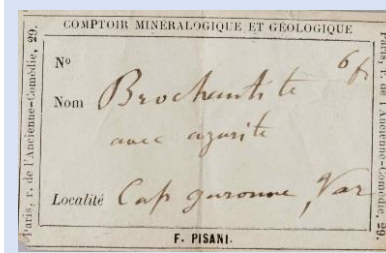 COMPTOIR MINÉRALOGIQUE ET GÉOLOGIQUE
Paris, r. de l'Ancienne-Comédie, 29.
Nº
6f
Nom Brochantite
avec azurite
Localité Cap garonne, Var
F. PISANI.
Paris, r. de l'Ancienne-Comédie, 29.